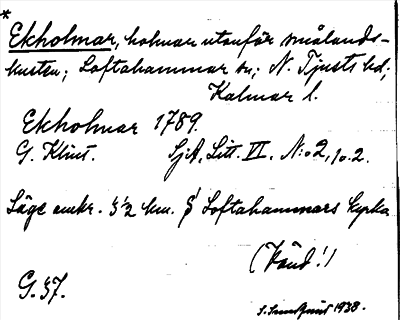 *
Ekholmar, holmar utanför smålands-
kusten; Loftahammar sn; N. Tjusts hd;
Kalmar l.
Ekholmar 1789.
G. Klint. SjA, Litt. VI. N:o 2, 1o. 2.
Läge omkr. 8 1/2 km. S Loftahammars kyrka.
(Vänd!)
G. 37.
1938.